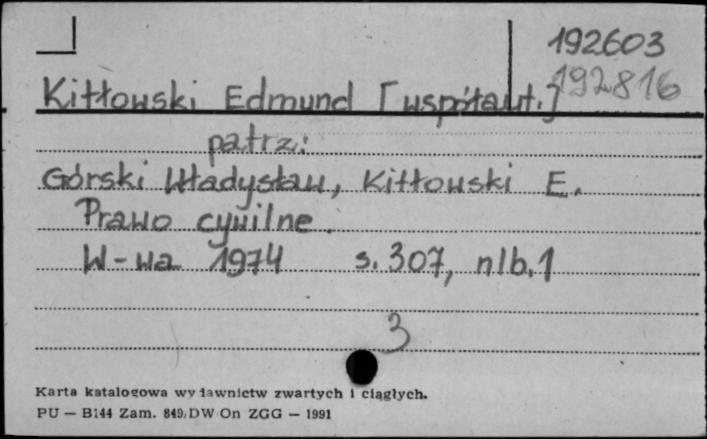 192603
192816
Kitłowski Edmund [współaut.]
patrz:
Górski Władysław, Kitłowski E.
Prawo cywilne.
W-wa 1974 s. 307, nlb. 1
3
Karta katalogowa wydawnictw zwartych i ciągłych.
PU — B144 Zam. 849/DW On ZGG — 1991